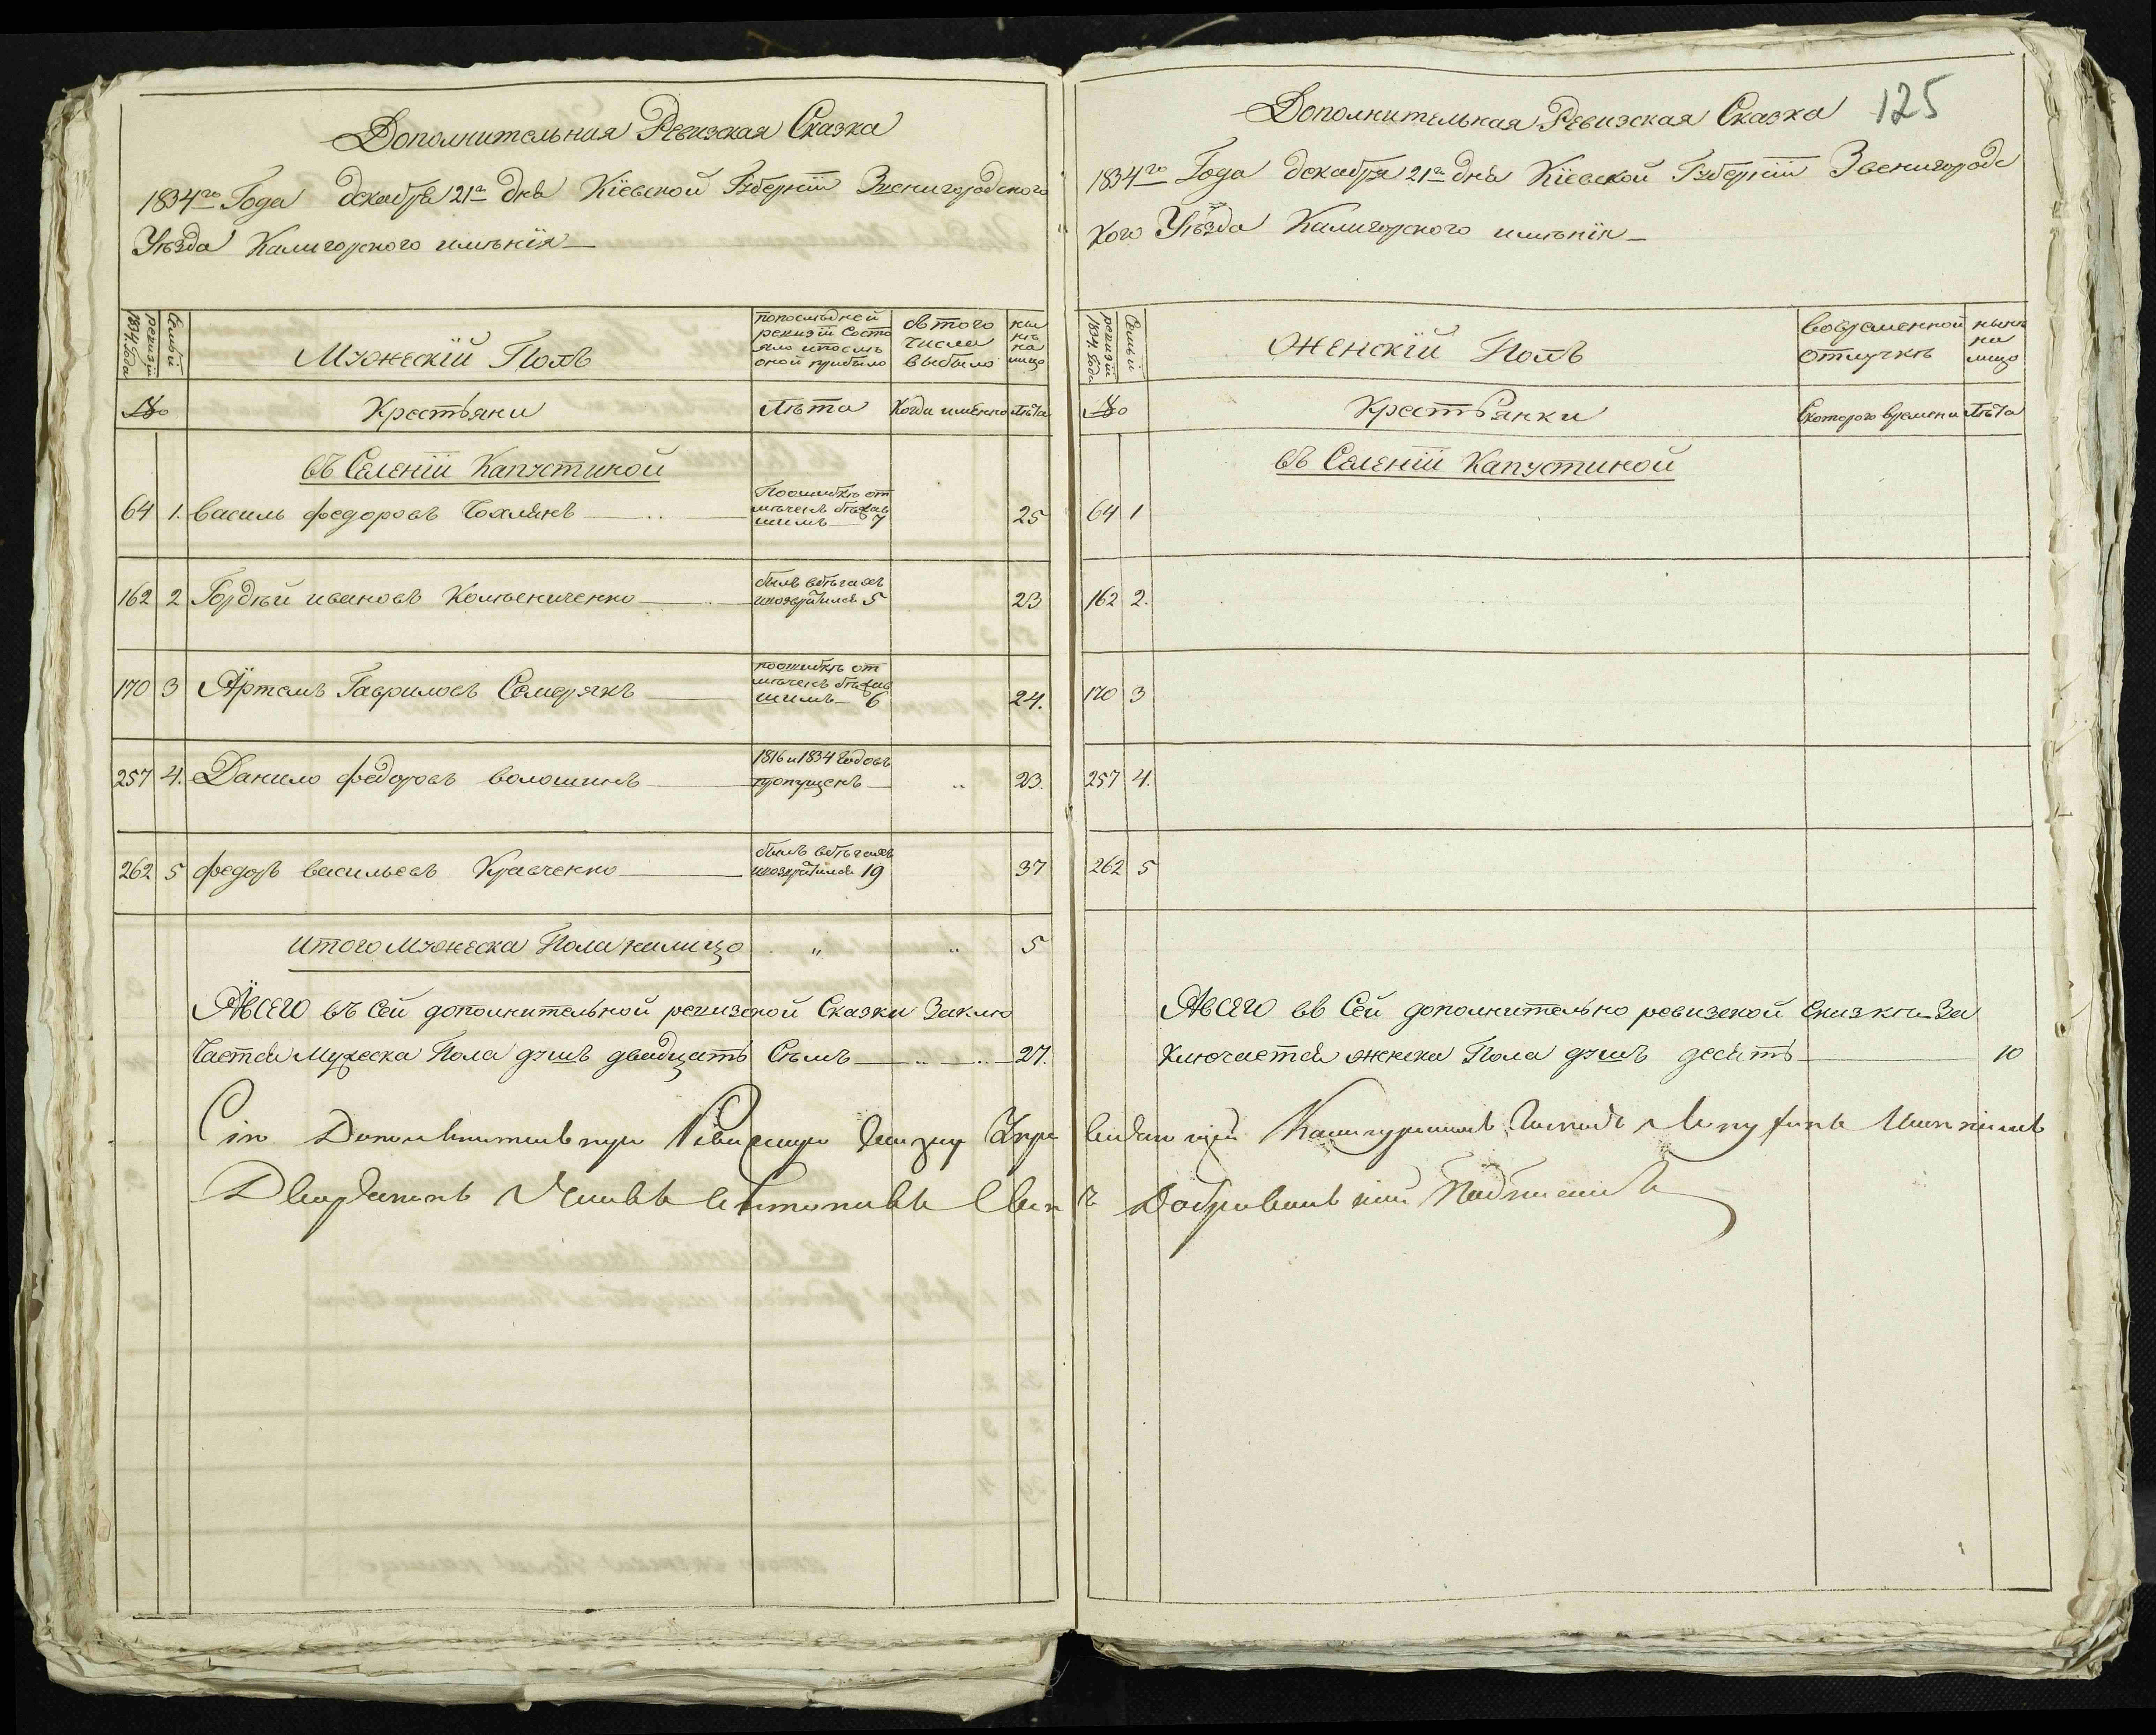 Дополнительная Ревизская Сказка
1834го Года декабря 21го дня Кіевской Губерніи Звенигородского
Уѣзда Калигорского имѣнія
Семьи ревизіи 1834. Года
Мужескій Полъ
по последней ревизіи состояло и после оной прибыло
съ того числа выбыло
нынѣ на лицо
№
Крестьяни
Лѣта
Когда именно
Лѣта
въ Селеніи Капустиной
64 1. Василь федоровъ Чохлянъ По ошибкѣ отмѣченъ бѣжавшимъ 7 25
162 2 Гордѣй ивановъ былъ въ бѣгахъ и возвратился 5 23
170 3 Артемъ Гавриловъ Семерякъ по ошибкѣ отмѣченъ бѣжавшимъ 6 24.
257 4. Данило федоровъ волошинъ 1816 и 1834 годовъ пропущенъ 23.
262 5 федоръ васильевъ Кравченко былъ въ бѣгахъ и возвратился 19 37
итого Мужеска Пола налицо 5
Авсего въ Сей дополнительной ревизской Сказки Заклю
чается Мужеска Пола душъ двадцать Семъ 27.
Сію Дополнительную Ревискую
Дворянинъ
125
Дополнительная Ревизская Сказка
1834го Года декабря 21го дня Кіевской Губерніи Звенигородс
кого Уѣзда Калигорского имѣнія
Семьи ревизіи 1834. Года
Женскій Полъ
во временной отлучкѣ
нынѣ на лицо
№
Крестьянки
Скоторого времени
Лѣта
въ Селеніи Капустиной
64 1
162 2.
170 3
257 4.
262 5
Авсего въ Сей дополнительно ревизской Сказки За
ключается женска Пола душъ десять 10